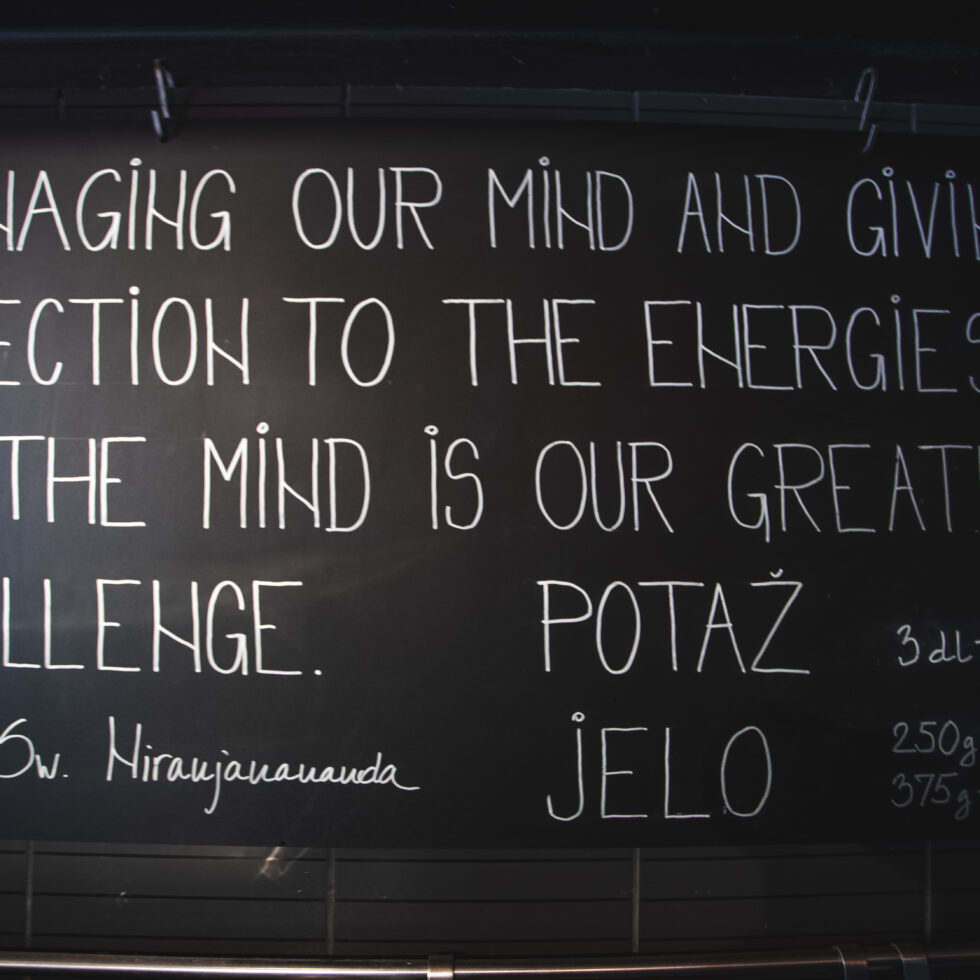 NAGiNG OUR MiND AND GiViN
ECTiON TO THE ENERGiES
THE MiND iS OUR GREAT
LLENGE.
Sw. Niranjanananda
POTAŽ 3 dL
jELO 250g
375g